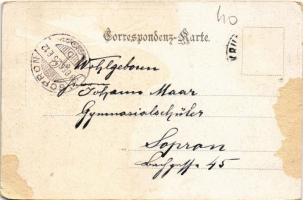 40
Correspondenz-Karte.
SOPRON
Wohlgeboren
Johann Maar
Gymnasialschüler
Sopron
45